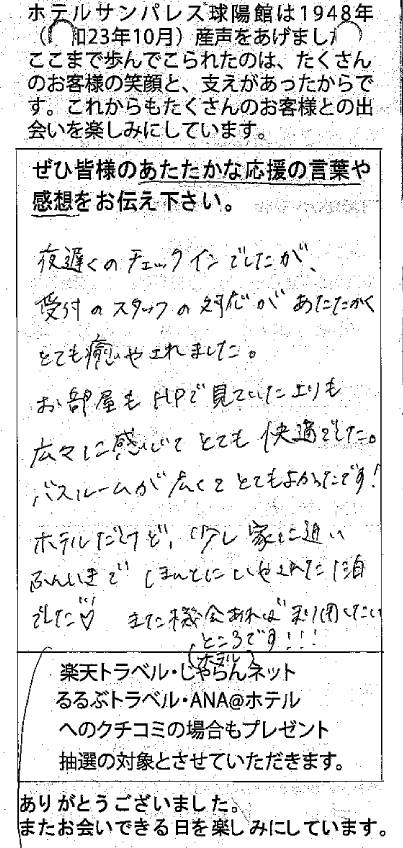 ホテルサンパレス球陽館は1948年
(和23年10月)産声をあげました
ここまで歩んでこられたのは、たくさん
のお客様の笑顔と、支えがあったからで
す。これからもたくさんのお客様との出
会いを楽しみにしています。
ぜひ皆様のあたたかな応援の言葉や
感想をお伝え下さい。
夜遅くのチェックインでしたが、
受付のスタッフの対応があたたかく
とても癒やされました。
お部屋もHPで見ていたよりも
広々と感じてとても快適でした。
バスルームが広くてとてもよかったです!
ホテルだけど、少し家に近い
ふんいきでほんとにいやされた
でした♡ また機会あれば利用したい
ところです!!!
(ホテル)
楽天トラベル・じゃらんネット
るるぶトラベル・ANA@ホテル
へのクチコミの場合もプレゼント
抽選の対象とさせていただきます。
ありがとうございました。
またお会いできる日を楽しみにしています。